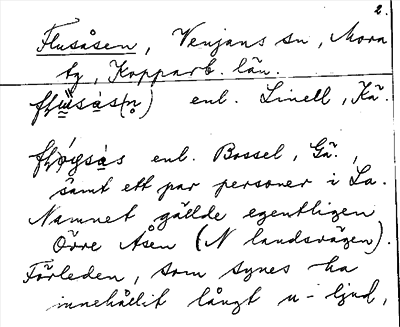 2.
Flusåsen, Venjans sn, Mora
tg, Kopparb. län.
enl. Linell, Kä.
enl. Bossel, Gä.,
samt ett par personer i La.
Namnet gällde egentligen
Övre Åsen (N landsvägen).
Förleden, som synes ha
innehållit långt u-ljud,